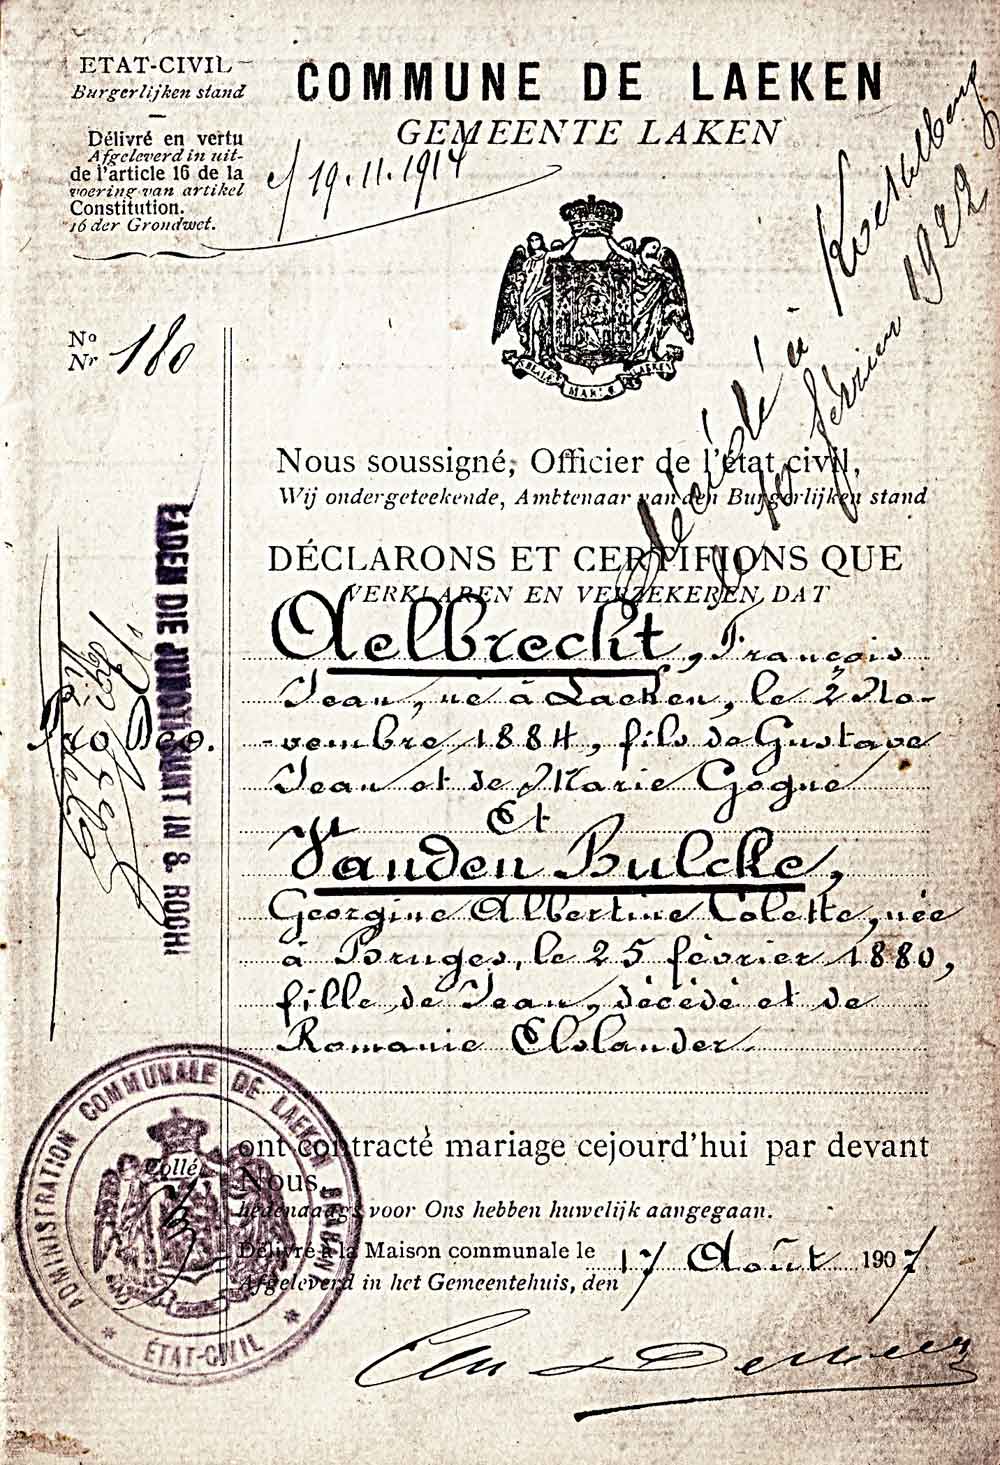 ETAT-CIVIL
Burgerlijken stand
Délivré en vertu
Afgeleverd in uit-
de l'article 16 de la
voering van artikel
Constitution.
16 der Grondwet.
COMMUNE DE LAEKEN
GEMEENTE LAKEN
19.11.1914
décédé à Koekelberg
le 10 février 1922
No
Nr 180
MARIÆ LAEKEN
Nous soussigné, Officier de l'état civil,
Wij ondergeteekende, Ambtenaar van den Burgerlijken stand
DÉCLARONS ET CERTIFIONS QUE
VERKLAREN EN VERZEKEREN DAT
Aelbrecht, François
Jean, né à Laeken, le 2 No-
vembre 1884, fils de Gustave
Jean et de Marie Gogne
Et
Vanden Bulcke,
Georgine Albertine Colette, née
à Bruges, le 25 février 1880,
fille de Jean, décédé et de
Romanie Elslander
ont contracté mariage cejourd'hui par devant
Nous.
hedenaags voor Ons hebben huwelijk aangegaan.
Délivré à la Maison communale le
Afgeleverd in het Gemeentehuis, den
17 Août 1907
Collé
ADMINISTRATION COMMUNALE DE LAEKEN
ÉTAT-CIVIL